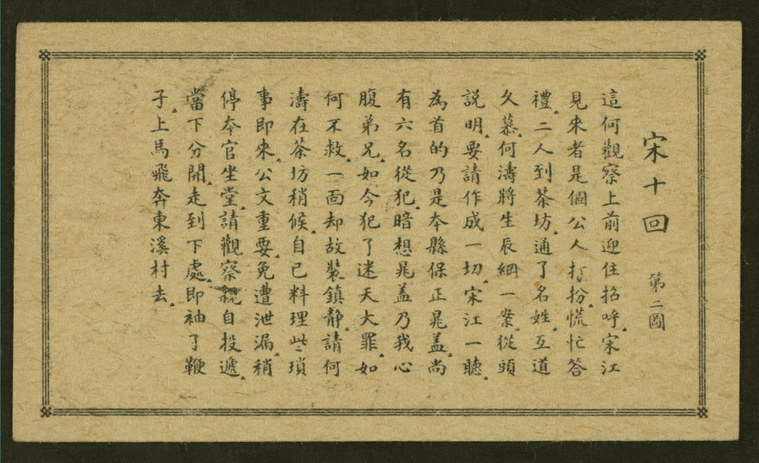 宋十回 第二圖
這何觀察上前迎住招呼。宋江
見來者是個公人打扮。慌忙答
禮。二人到茶坊。通了名姓。互道
久慕。何濤將生辰綱一案。從頭
說明。要請作成一切。宋江一聽。
為首的乃是本縣保正晁盖。尚
有六名從犯。暗想晁盖乃我心
腹弟兄。如今犯了迷天大罪。如
何不救。一面却故裝鎮静。請何
濤在茶坊稍候。自己料理些瑣
事即來。公文重要。免遭泄漏。稍
停本官坐堂。請觀察親自投遞。
當下分開。走到下處。即袖了鞭
子。上馬飛奔東溪村去。